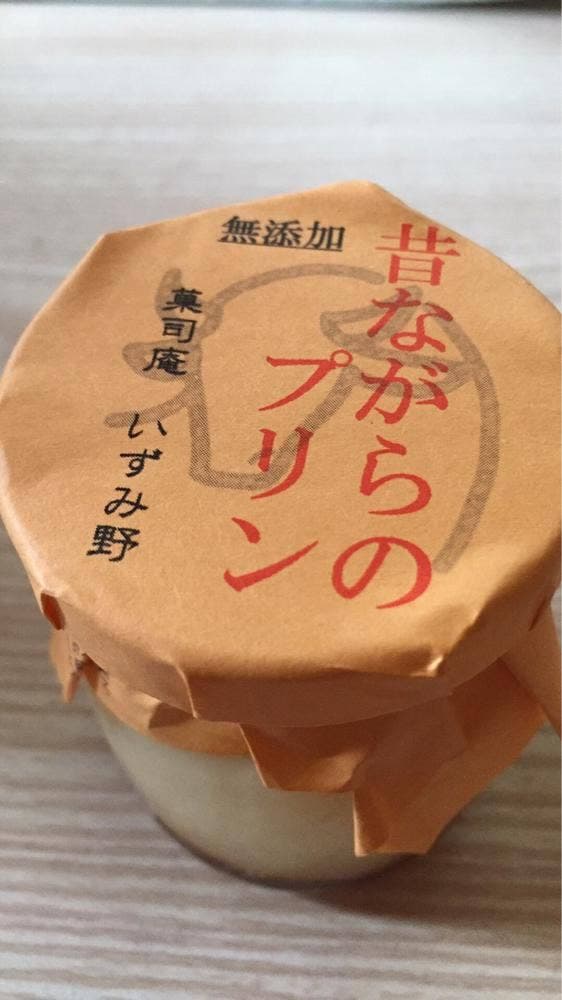 無添加
昔ながらの
プリン
菓司庵 いずみ野